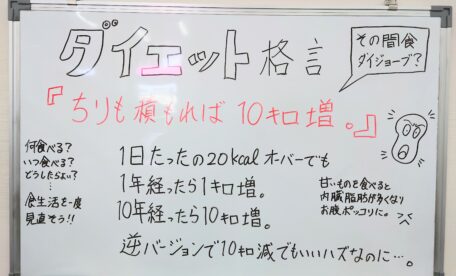 ダイエット格言
その間食
ダイジョーブ?
『ちりも積もれば10キロ増。』
何食べる?
いつ食べる?
どうしたらよい?
…
食生活を一度
見直そう!!
1日たったの20kcalオーバーでも
1年経ったら1キロ増。
10年経ったら10キロ増。
逆バージョンで10キロ減でもいいハズなのに…。
甘いものを食べると
内臓脂肪が多くなり
お腹ポッコリに。